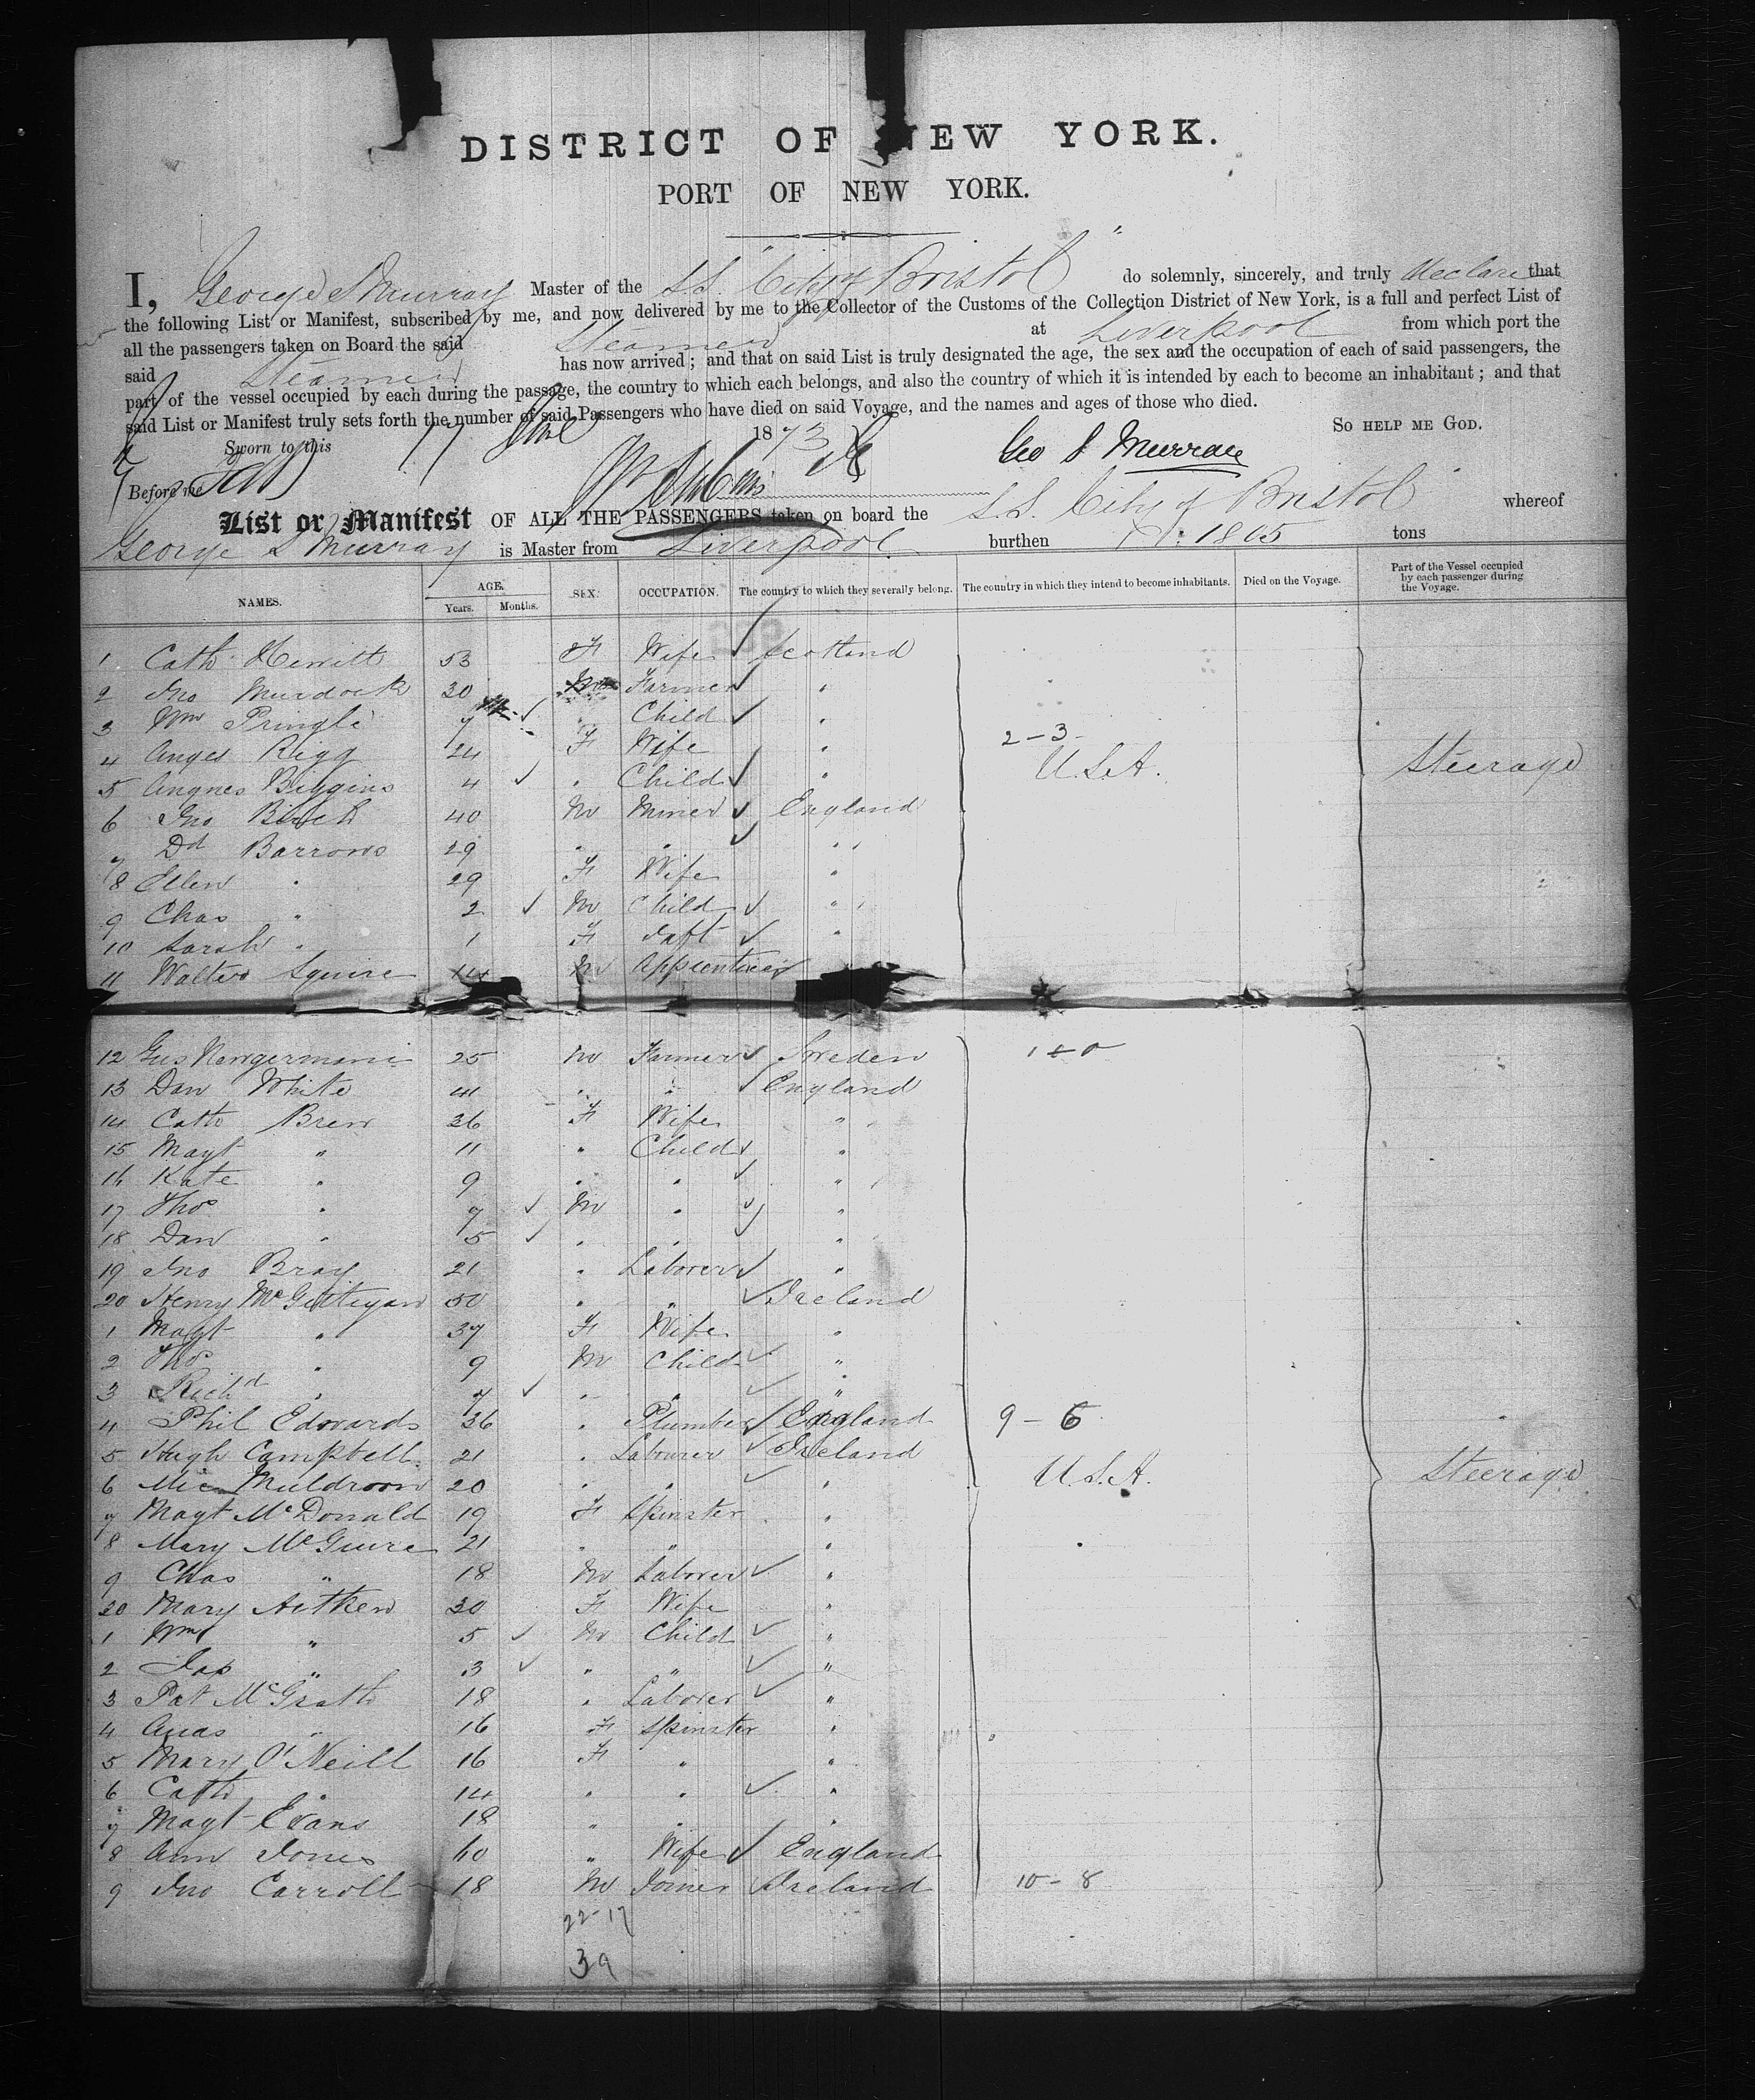 DISTRICT OF NEW YORK.
PORT OF NEW YORK.
I, George S Murray Master of the S.S. "City of Bristol" do solemnly, sincerely, and truly declare that
the following List or Manifest, subscribed by me, and now delivered by me to the Collector of the Customs of the Collection District of New York, is a full and perfect List of
all the passengers taken on Board the said Steamer at Liverpool from which port the
said Steamer has now arrived; and that on said List is truly designated the age, the sex and the occupation of each of said passengers, the
part of the vessel occupied by each during the passage, the country to which each belongs, and also the country of which it is intended by each to become an inhabitant; and that
said List or Manifest truly sets forth the number of said Passengers who have died on said Voyage, and the names and ages of those who died.
SO HELP ME GOD.
Sworn to this 17 1873 Geo S Murray
Before me
List or Manifest OF ALL THE PASSENGERS taken on board the S.S. City of Bristol whereof
George S Murray is Master from Liverpool burthen 1805 tons
NAMES. AGE. Years. Months. SEX. OCCUPATION. The country to which they severally belong. The country in which they intend to become inhabitants. Died on the Voyage. Part of the Vessel occupied by each passenger during the Voyage.
1 Cath Hewitt 53 F Wife Scotland
2 Jno Murdock 30 M Farmer "
3 Wm Pringle 7 " Child "
4 Anges Rigg 24 F Wife " 2-3
5 Angnes Biggins 4 " Child " U.S.A. Steerage
6 Jno Birch 40 M Miner England
7 Dd Barrows 29 " " "
8 Ellen " 29 F Wife "
9 Chas " 2 M Child "
10 Sarah " 1 F Inft "
11 Walter Squire 14 M Apprentice
12 Gus 25 M Farmer Sweden
13 Dan White 41 " " England
14 Cath Brew 36 F Wife "
15 Magt " 11 " Child "
16 Kate " 9 " " "
17 Thos " 7 M " "
18 Dan " 5 " " "
19 Jno Bray 21 " Laborer "
20 Henry McGettigan 50 " " Ireland
1 Magt " 37 F Wife "
2 Thos " 9 M Child "
3 Richd " 7 " " "
4 Phil Edwards 36 " Plumber England 9-6
5 Hugh Campbell 21 " Labourer Ireland
6 Mic Muldroon 20 " " " U.S.A. Steerage
7 Magt McDonald 19 F Spinster "
8 Mary McGuire 21 " " "
9 Chas " 18 M Laborer "
30 Mary Aitken 30 F Wife "
1 Wm " 5 M Child "
2 Jas " 3 " " "
3 Pat McGrath 18 " Laborer "
4 " 16 F Spinster "
5 Mary O'Neill 16 F " "
6 Cath " 14 " " "
7 Magt Evans 18 " " "
8 Ann Jones 60 " Wife England
9 Jno Carroll 18 M Joiner Ireland 10-8
22-17
39